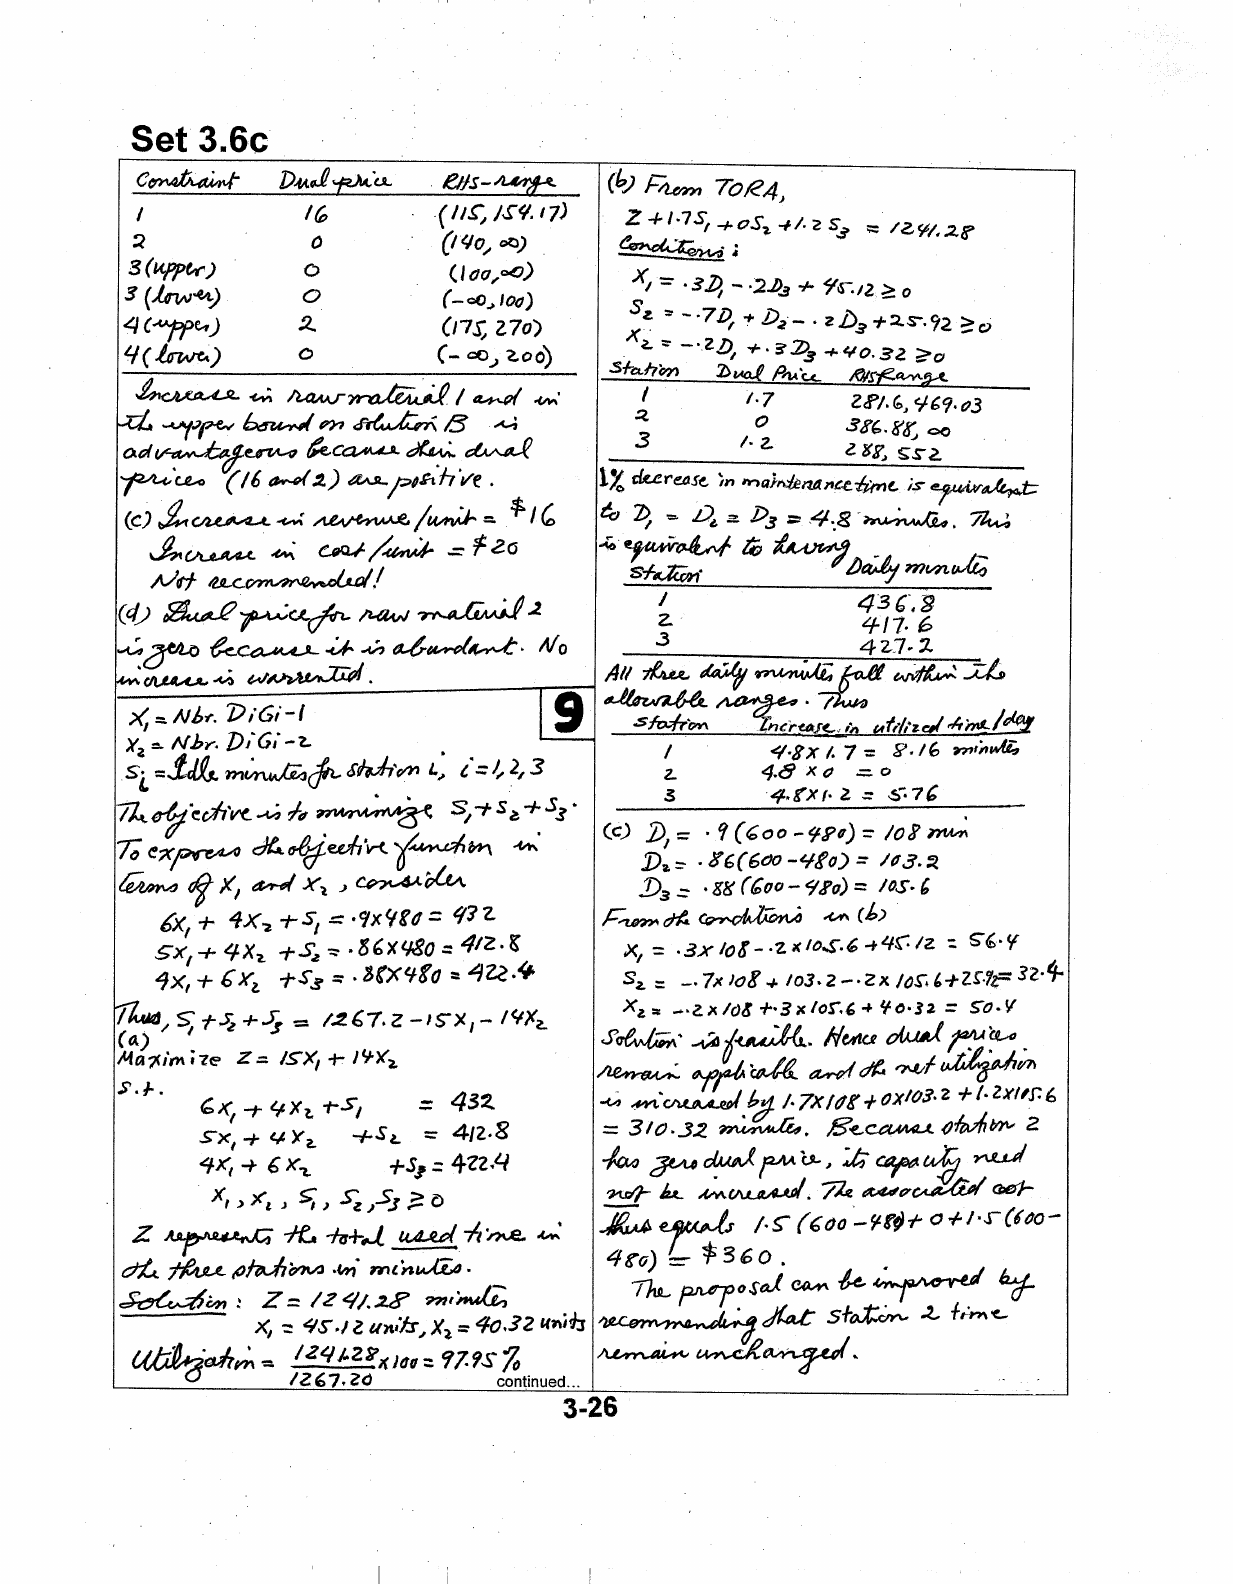 Set 3.6c
Constraint Dual price RHS-range
1 16 (115, 154.17)
2 0 (140, ∞)
3 (upper) 0 (100, ∞)
3 (lower) 0 (-∞, 100)
4 (upper) 2 (175, 270)
4 (lower) 0 (-∞, 200)
Increase in raw material 1 and in
the upper bound on solution B is
advantageous because their dual
prices (16 and 2) are positive.
(c) Increase in revenue/unit = $16
Increase in cost/unit = $20
Not recommended!
(d) Dual price for raw material 2
is zero because it is abundant. No
increase is warranted.
9
X₁ = Nbr. DiGi-1
X₂ = Nbr. DiGi-2
Sᵢ = Idle minutes for station i, i = 1, 2, 3
The objective is to minimize S₁ + S₂ + S₃.
To express the objective function in
terms of X₁ and X₂, consider
6X₁ + 4X₂ + S₁ = .9X480 = 432
5X₁ + 4X₂ + S₂ = .86X480 = 412.8
4X₁ + 6X₂ + S₃ = .88X480 = 422.4
Thus, S₁ + S₂ + S₃ = 1267.2 - 15X₁ - 14X₂
(a)
Maximize Z = 15X₁ + 14X₂
s.t.
6X₁ + 4X₂ + S₁ = 432
5X₁ + 4X₂ + S₂ = 412.8
4X₁ + 6X₂ + S₃ = 422.4
X₁, X₂, S₁, S₂, S₃ ≥ 0
Z represents the total used time in
the three stations in minutes.
Solution: Z = 1241.28 minutes
X₁ = 45.12 units, X₂ = 40.32 units
Utilization = 1241.28/1267.20 X 100 = 97.95%
continued...
(b) From TORA,
Z + 1.7S₁ + 0S₂ + 1.2S₃ = 1241.28
Conditions:
X₁ = .3D₁ - .2D₃ + 45.12 ≥ 0
S₂ = -.7D₁ + D₂ - .2D₃ + 25.92 ≥ 0
X₂ = -.2D₁ + .3D₃ + 40.32 ≥ 0
Station Dual Price RHS Range
1 1.7 281.6, 469.03
2 0 386.88, ∞
3 1.2 288, 552
1% decrease in maintenance time is equivalent
to D₁ = D₂ = D₃ = 4.8 minutes. This
is equivalent to having
Station Daily minutes
1 436.8
2 417.6
3 427.2
All three daily minutes fall within the
allowable ranges. Thus
Station Increase in utilized time/day
1 4.8X1.7 = 8.16 minutes
2 4.8 X 0 = 0
3 4.8X1.2 = 5.76
(c) D₁ = .9(600-480) = 108 min
D₂ = .86(600-480) = 103.2
D₃ = .88(600-480) = 105.6
From the conditions in (b)
X₁ = .3x108 - .2x105.6 + 45.12 = 56.4
S₂ = -.7x108 + 103.2 - .2x105.6 + 25.92 = 32.4
X₂ = -.2x108 + .3x105.6 + 40.32 = 50.4
Solution is feasible. Hence dual prices
remain applicable and the net utilization
is increased by 1.7X108 + 0X103.2 + 1.2X105.6
= 310.32 minutes. Because station 2
has zero dual price, its capacity need
not be increased. The associated cost
thus equals 1.5(600-480) + 0 + 1.5(600-
480) = $360.
The proposal can be improved by
recommending that station 2 time
remain unchanged.
3-26